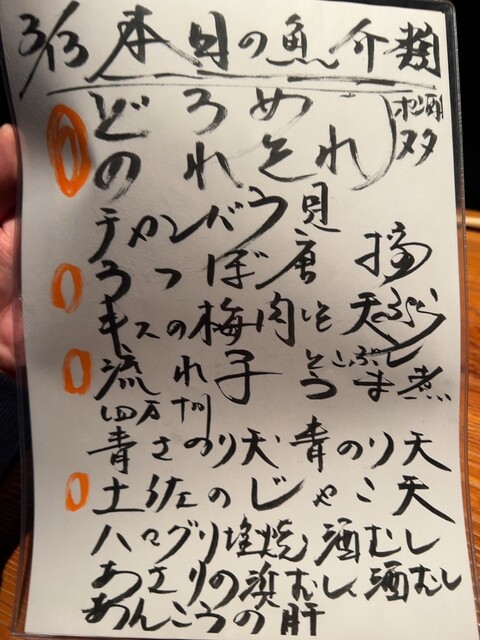 3/13 本日の魚介類
どろめ ポン酢
のれそれ ヌタ
チャンバラ貝
うつぼ唐揚
キスの梅肉しそ天ぷら
流れ子 とこぶし うま煮
四万十川
青さのり天 青のり天
土佐のじゃこ天
ハマグリ塩焼 酒むし
あさりの浜むし 酒むし
あんこうの肝